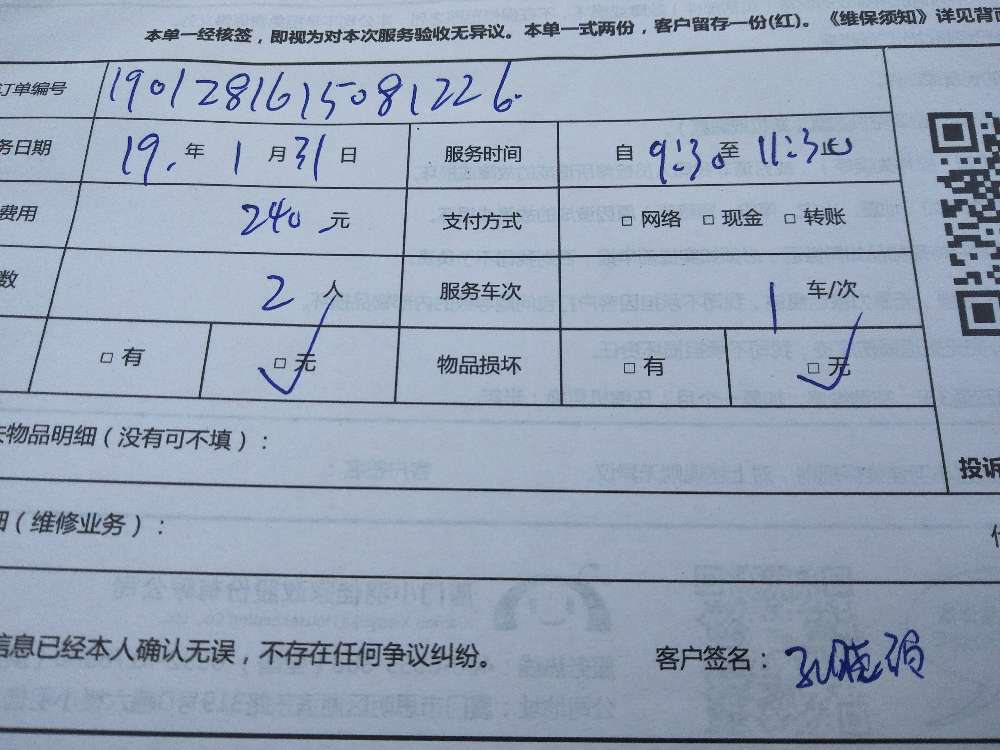 本单一经核签，即视为对本次服务验收无异议。本单一式两份，客户留存一份(红)。《维保须知》详见背面
订单编号 1901281615081226
务日期 19. 年 1 月 31 日 服务时间 自 9:30 至 11:3 止
费用 240 元 支付方式 □ 网络 □ 现金 □ 转账
数 2 人 服务车次 1 车/次
□ 有 □ 无 物品损坏 □ 有 □ 无
失物品明细（没有可不填）：
投诉
细（维修业务）：
信息已经本人确认无误，不存在任何争议纠纷。 客户签名：